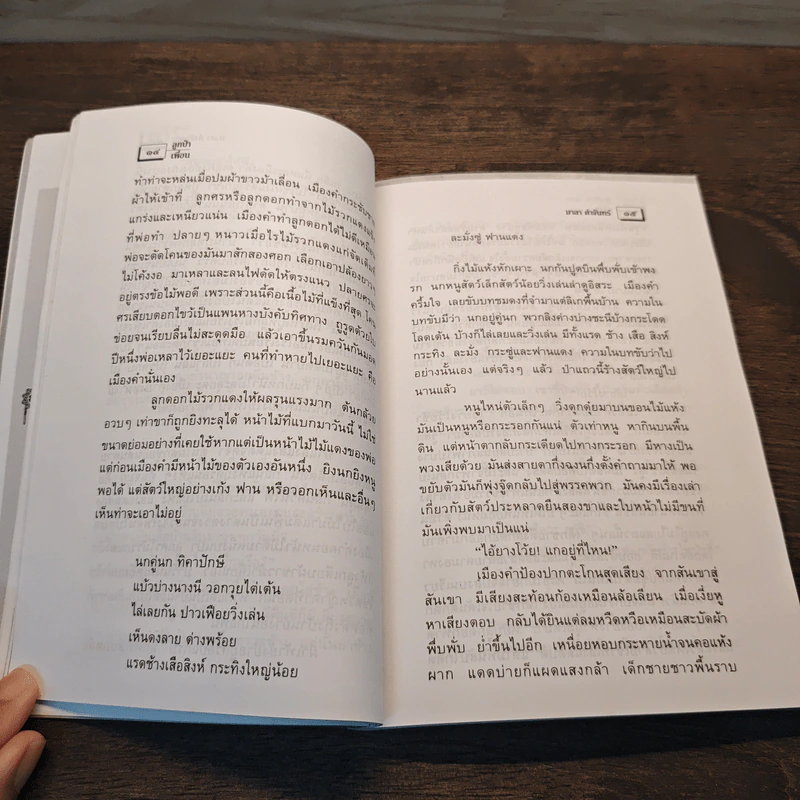 ๑๔ ลูกป่า
เพื่อน
ทำท่าจะหล่นเมื่อปมผ้าขาวม้าเลื่อน เมืองคำกระชับชาย
ผ้าให้เข้าที่ ลูกศรหรือลูกดอกทำจากไม้รวกแดงแข็ง
แกร่งและเหนียวแน่น เมืองคำทำลูกดอกได้ไม่ดีเหมือน
ที่พ่อทำ ปลายๆ หนาวเมื่อไรไม้รวกแดงแก่จัดเต็มที่
พ่อจะตัดโคนของมันมาสักสองศอก เลือกเอาปล้องยาวๆ
ไม่โค้งงอ มาเหลาและลนไฟดัดให้ตรงแนว ปลายศร
อยู่ตรงข้อไม้พอดี เพราะส่วนนี้คือเนื้อไม้ที่แข็งที่สุด โคน
ศรเสียบตอกไขว้เป็นแพนหางบังคับทิศทาง ถูรูดด้วยใบ
ข่อยจนเรียบลื่นไม่สะดุดมือ แล้วเอาขึ้นรมควันกันมอด
ปีหนึ่งพ่อเหลาไว้เยอะแยะ คนที่ทำหายไปเยอะแยะ คือ
เมืองคำนั่นเอง
ลูกดอกไม้รวกแดงให้ผลรุนแรงมาก ต้นกล้วย
อวบๆ เท่าขาก็ถูกยิงทะลุได้ หน้าไม้ที่แบกมาวันนี้ ไม่ใช่
ขนาดย่อมอย่างที่เคยใช้หากแต่เป็นหน้าไม้ไม้แดงของพ่อ
แต่ก่อนเมืองคำมีหน้าไม้ของตัวเองอันหนึ่ง ยิงนกยิงหนู
พอได้ แต่สัตว์ใหญ่อย่างเก้ง ฟาน หรือวอกเห็นและอื่นๆ
เห็นท่าจะเอาไม่อยู่
นกคู่นก ทิคาปักษี
แบ้วบ่างนางนี วอกวุยไต่เต้น
ไล่เลยกัน ปาวเฟือยวิ่งเล่น
เห็นดงลาย ด่างพร้อย
แรดช้างเสือสิงห์ กระทิงใหญ่น้อย
มาลา คำจันทร์ ๑๕
ละมั่งซู่ ฟานแดง
กิ่งไม้แห้งหักเผาะ นกกันปูดบินพึ่บพั่บเข้าพง
รก นกหนูสัตว์เล็กสัตว์น้อยวิ่งเล่นล่าดูอิสระ เมืองคำ
ครึ้มใจ เลยขับบทชมดงที่จำมาแต่ลิเกพื้นบ้าน ความใน
บทขับมีว่า นกอยู่คู่นก พวกลิงค่างบ่างชะนีบ้างกระโดด
โลดเต้น บ้างก็ไล่เลยและวิ่งเล่น มีทั้งแรด ช้าง เสือ สิงห์
กระทิง ละมั่ง กระซู่และฟานแดง ความในบทขับว่าไป
อย่างนั้นเอง แต่จริงๆ แล้ว ป่าแถวนี้ร้างสัตว์ใหญ่ไป
นานแล้ว
หนูไหน่ตัวเล็กๆ วิ่งตุกตุ๋ยมาบนขอนไม้แห้ง
มันเป็นหนูหรือกระรอกกันแน่ ตัวเท่าหนู หากินบนพื้น
ดิน แต่หน้าตากลับกระเดียดไปทางกระรอก มีหางเป็น
พวงเสียด้วย มันส่งสายตากึ่งฉงนกึ่งตั้งคำถามมาให้ พอ
ขยับตัวมันก็พุ่งจู๊ดกลับไปสู่พรรคพวก มันคงมีเรื่องเล่า
เกี่ยวกับสัตว์ประหลาดยืนสองขาและใบหน้าไม่มีขนที่
มันเพิ่งพบมาเป็นแน่
“ไอ้ยางโว้ย! แกอยู่ที่ไหน!”
เมืองคำป้องปากตะโกนสุดเสียง จากสันเขาสู่
สันเขา มีเสียงสะท้อนก้องเหมือนล้อเลียน เมื่อเงี่ยหู
หาเสียงตอบ กลับได้ยินแต่ลมหวีดหวือเหมือนสะบัดผ้า
พึ่บพั่บ ย่ำขึ้นไปอีก เหนื่อยหอบกระหายน้ำจนคอแห้ง
ผาก แดดบ่ายก็แผดแสงกล้า เด็กชายชาวพื้นราบ